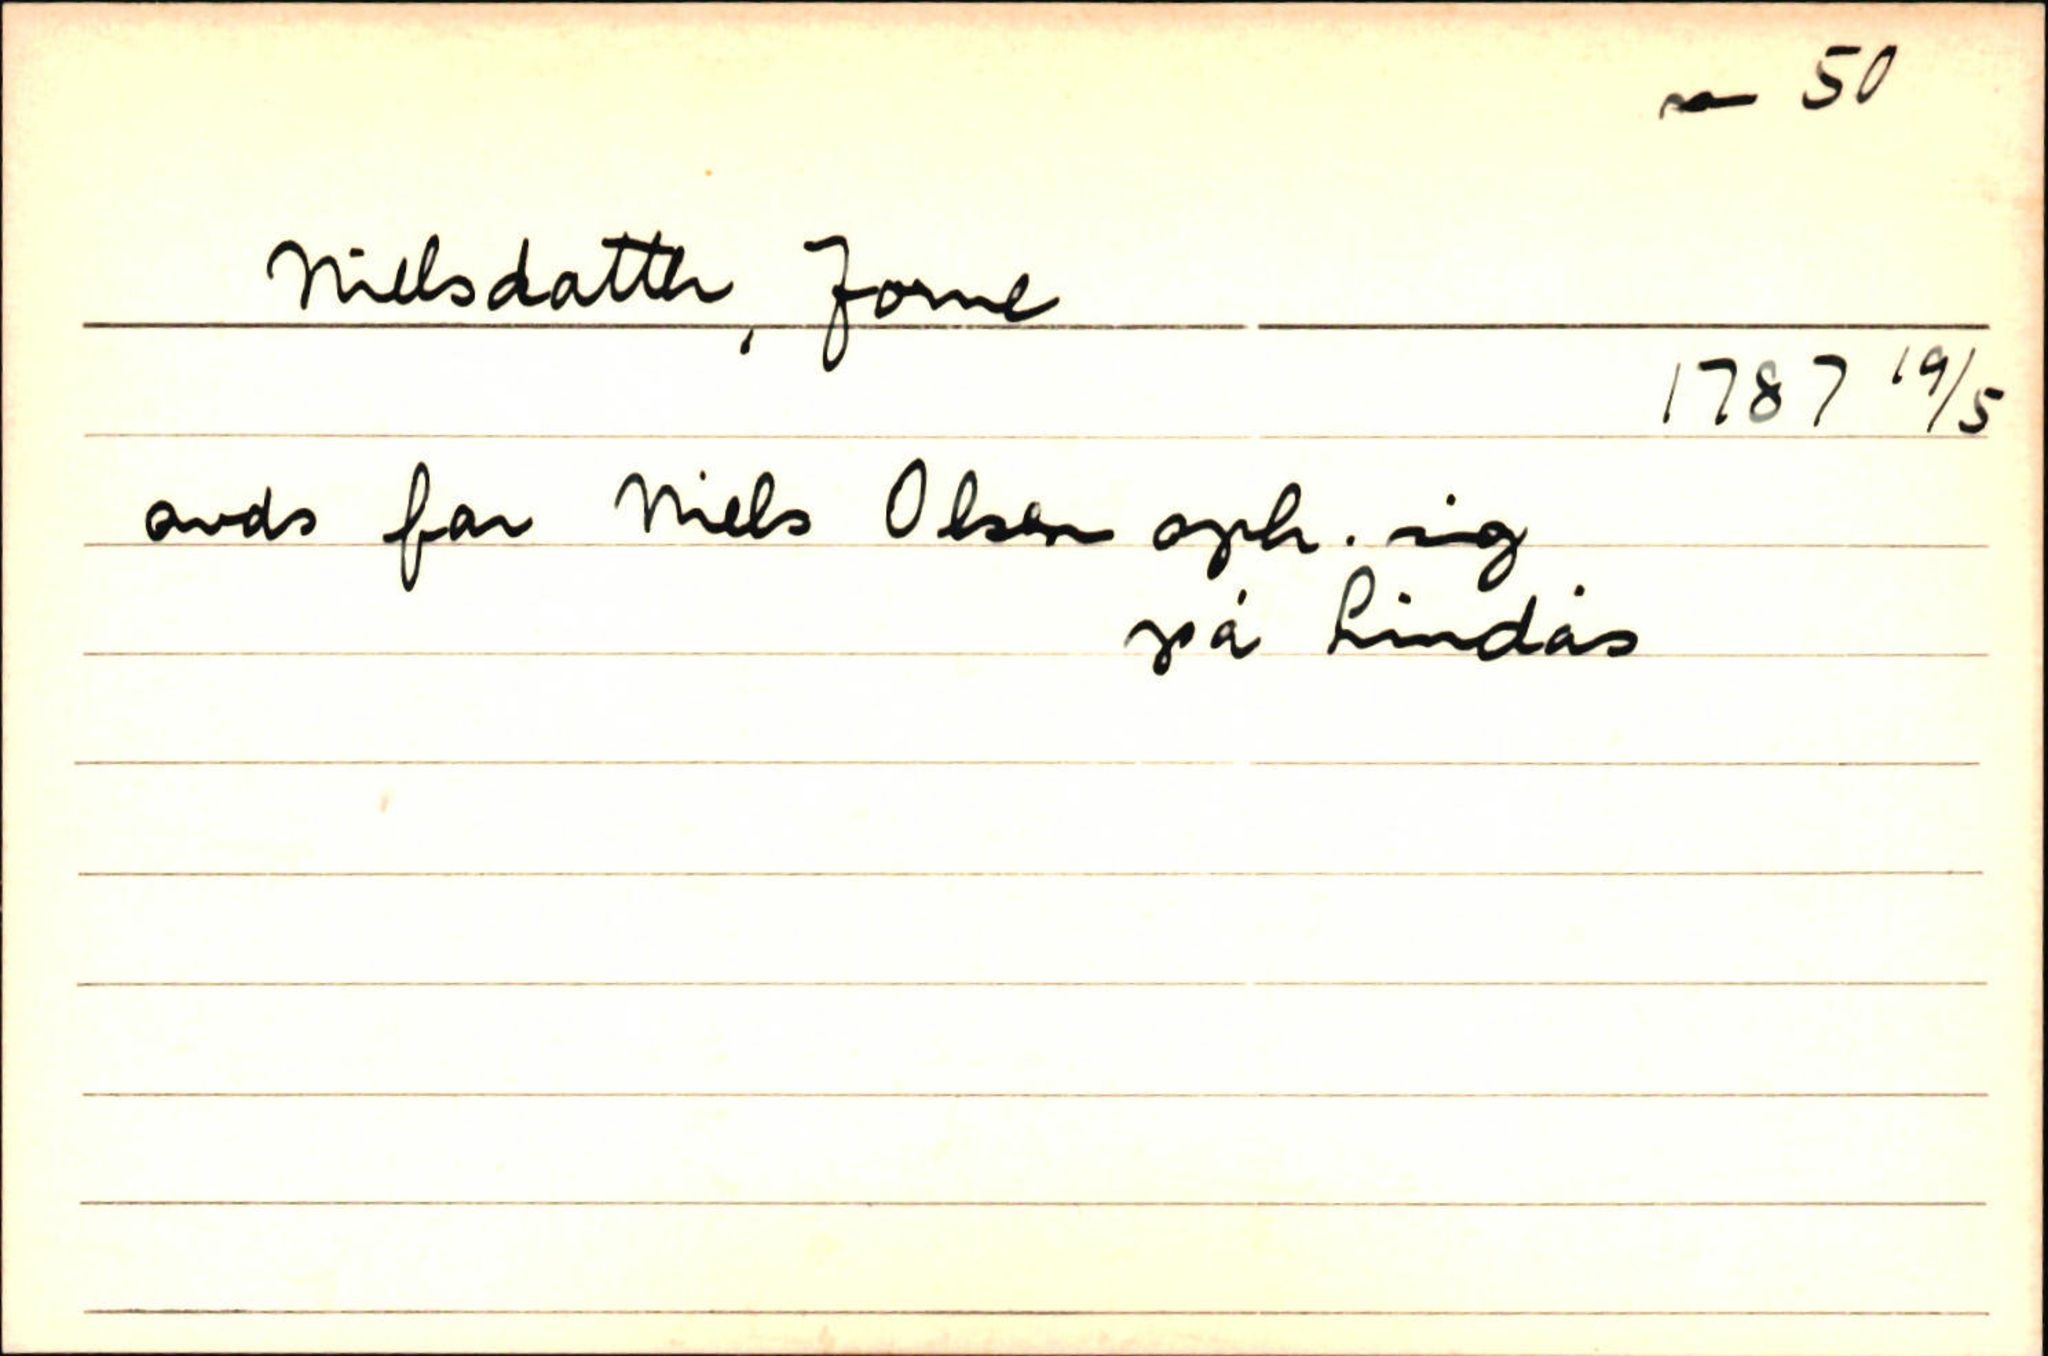 50
Nielsdatter, Jorne
1787 19/5
avds far Niels Olsen oph. sig
på Lindås